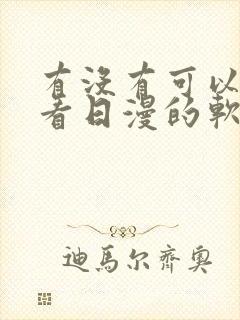 有没有可以
看日漫的軟
迪馬尔齊奥